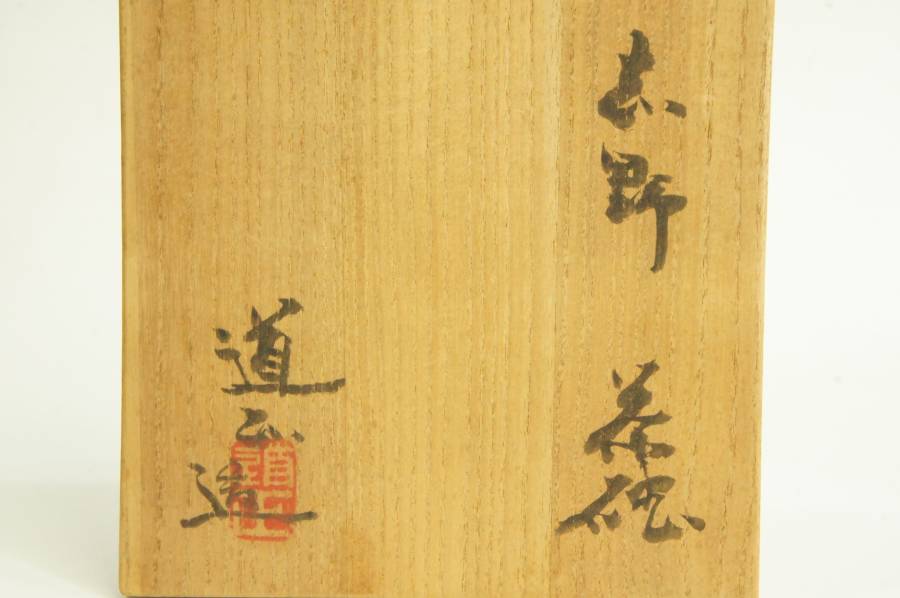 志野 茶碗
道正造